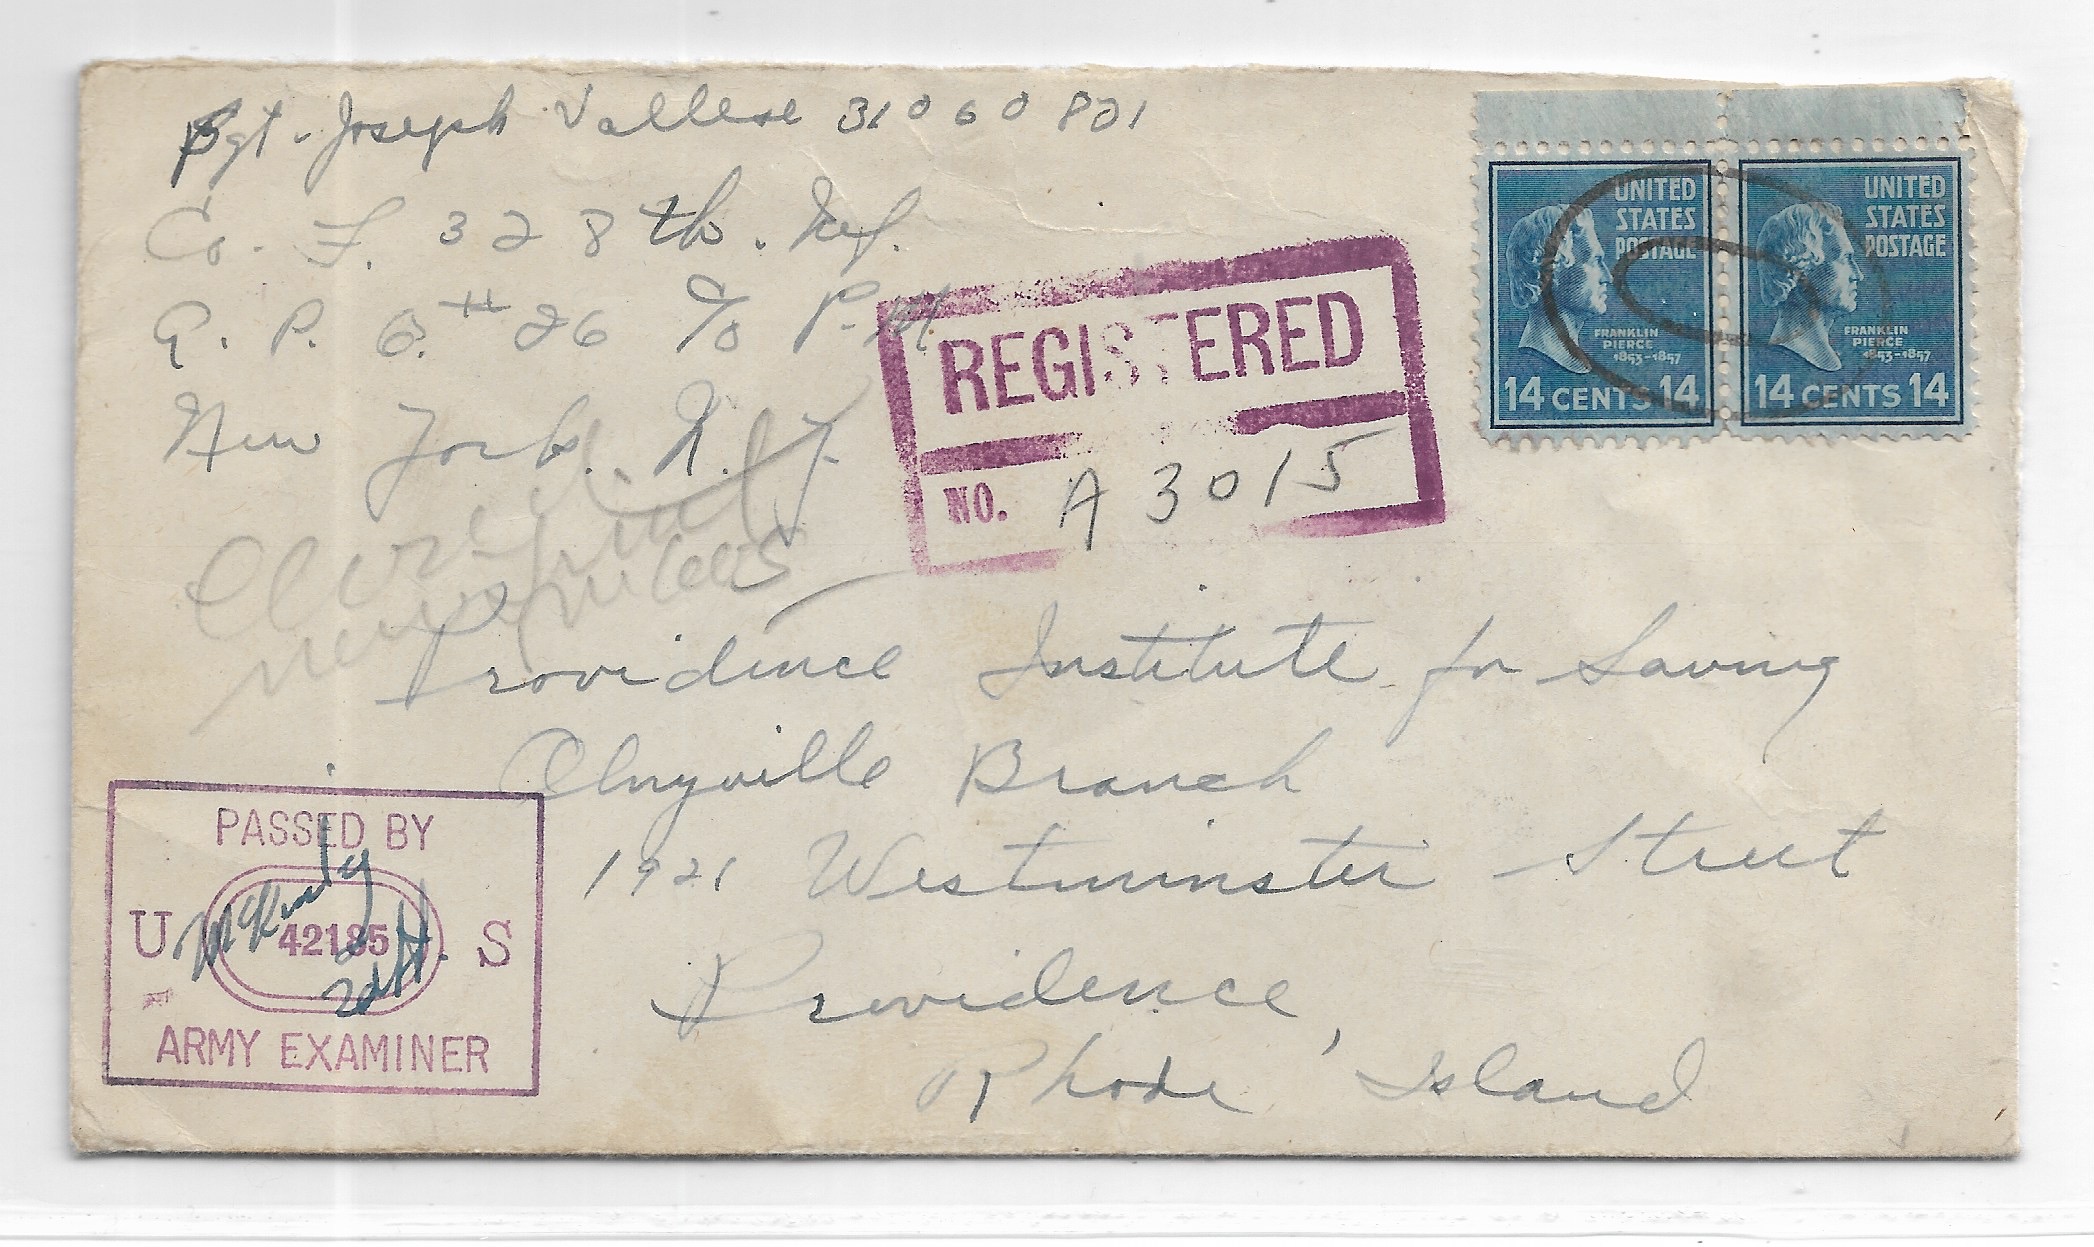 Sgt. Joseph Vallese 31060821
Co. F. 328th. Inf.
A. P. O. # 26 c/o P.M.
New York. N. Y.
REGISTERED
NO. A 3015
UNITED
STATES
POSTAGE
FRANKLIN
PIERCE
1853-1857
14 CENTS 14
UNITED
STATES
POSTAGE
FRANKLIN
PIERCE
1853-1857
14 CENTS 14
Providence Institute for Saving
Olnyville Branch
1921 Westminster Street
Providence,
Rhode Island
PASSED BY
U 42185 S
2d Lt.
ARMY EXAMINER